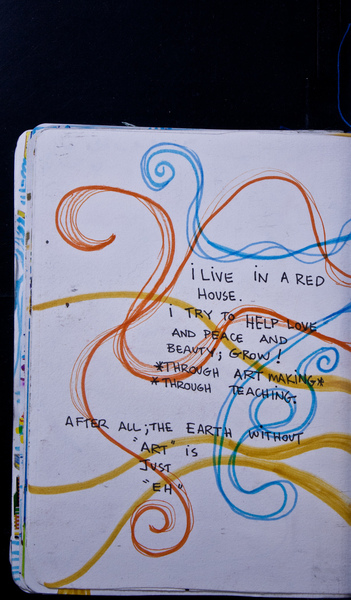 i LIVE IN A RED
HOUSE.
i TRY TO HELP LOVE
AND PEACE AND
BEAUTY; GROW!
*THROUGH ART MAKING*
*THROUGH TEACHING.
AFTER ALL; THE EARTH WITHOUT
"ART" iS
JUST
"EH"